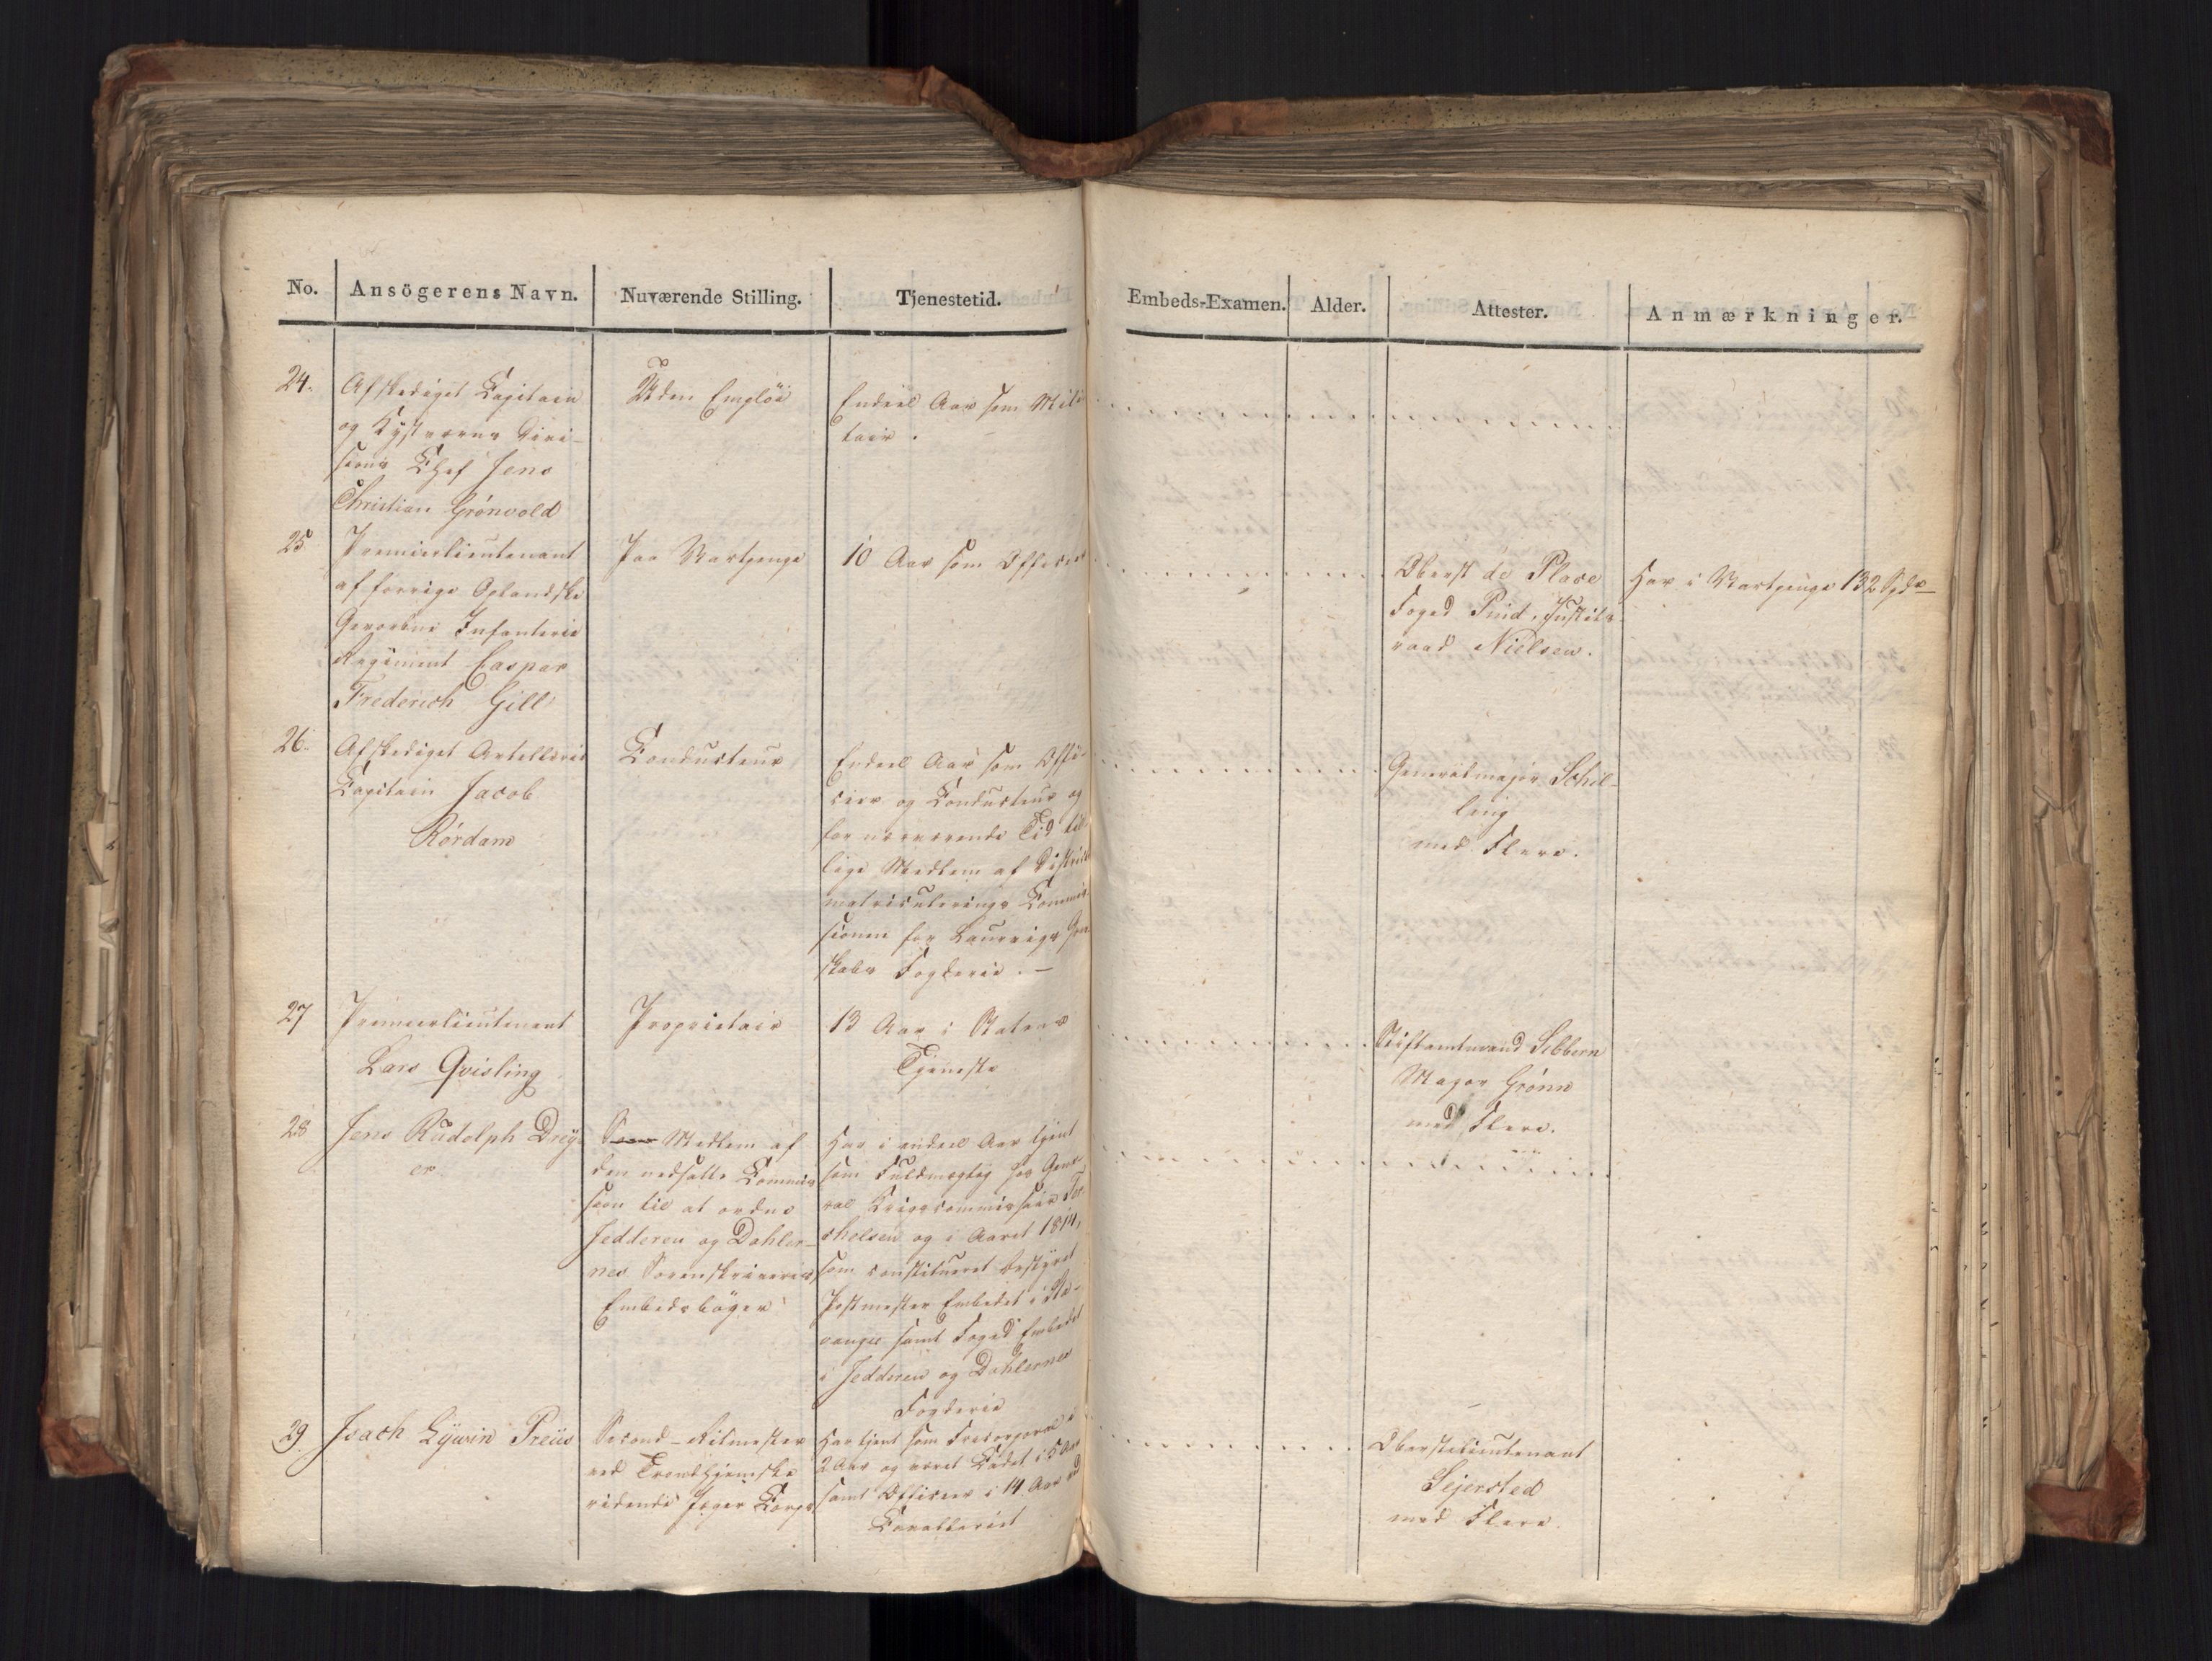 No. Ansögerens Navn. Nuværende Stilling. Tjenestetid. Embeds-Examen. Alder. Attester. Anmærkninger.
24. Afskediget Capitain
og Kystværns Divi-
sions Chef Jens
Christian Grönvold
Uden Emploi
Endeel Aar som Mili
tair.
25 Premierlieutenant
af forrige Oplandske
Gevorbne Infanterie
Regiment Caspar
Frederich Gill
Paa Vartpenge
10 Aar som Officier
Oberst de Place
Foged Pind, Justits-
raad Nielsen.
Har i Vartpenge 132 Spd
26. Afskediget Artellerie
Capitain Jacob
Rördam
Conducteur
Endeel Aar som Offi-
cier og Conducteur og
for nærværende Tid til
lige Medlem af Districts
matriculerings Commis-
sionen for Laurvigs Grev
skabs Fogderie. —
Generalmajor Schil-
ling
med Flere.
27 Premierlieutenant
Lars Qvisling
Proprietair
13 Aar i Statens
Tjeneste
Stiftamtmand Sibbern
Major Grönn
med Flere.
28 Jens Rudolph Drey-
er
Medlem af
den nedsatte Commis
sion til at ordne
Jedderen og Dahler-
nes Sorenskriveries
Embedsböger
Har i endeel Aar tjent
som Fuldmægtig for Gene-
ral Krigscommissair
chelsen og i Aaret 1814,
som constitueret bestyret
Postmester Embedet i Sta-
vanger samt Foged Embedet
i Jedderen og Dahlernes
Fogderie
29. Isach Lywin Preüs
Second-Ritmester
ved Trondhjemske
ridende Jæger Corps
Har tjent som Frecorporal i
2 Aar og været Cadet i 5 Aar
samt Officier i 14 Aar ved
Cavalleriet
Oberstelieutenant
Sejersted
med Flere.